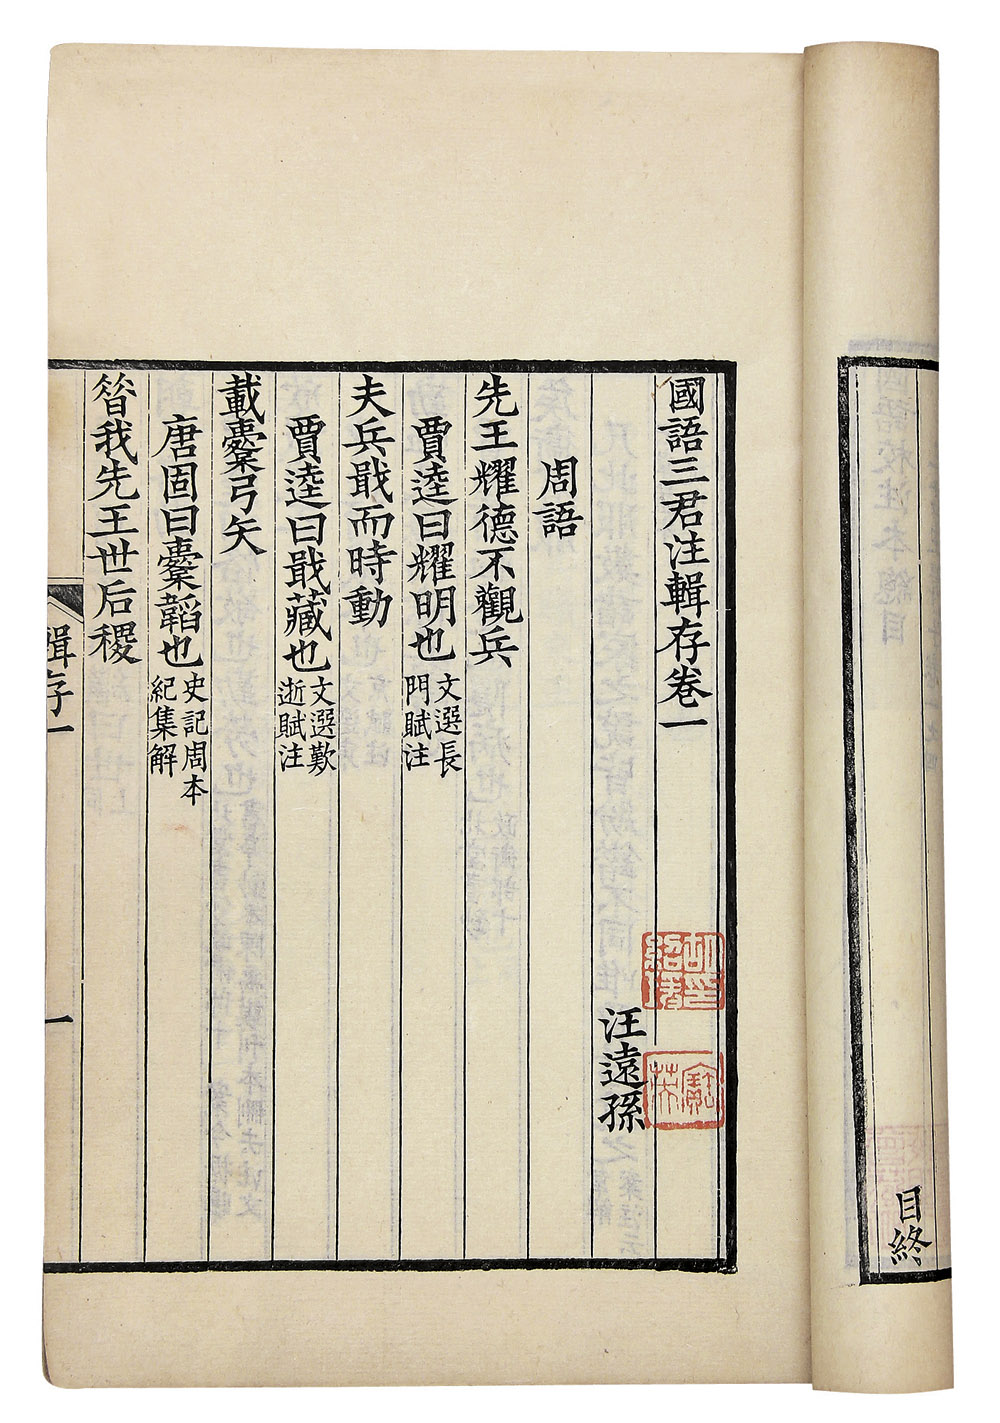 國語三君注輯存卷一
汪遠孫
周語
先王耀德不觀兵
賈逵曰耀明也文選長
門賦注
夫兵戢而時動
賈逵曰戢藏也文選歎
逝賦注
載櫜弓矢
唐固曰櫜韜也史記周本
紀集解
昝我先王世后稷
輯存一
一
目終